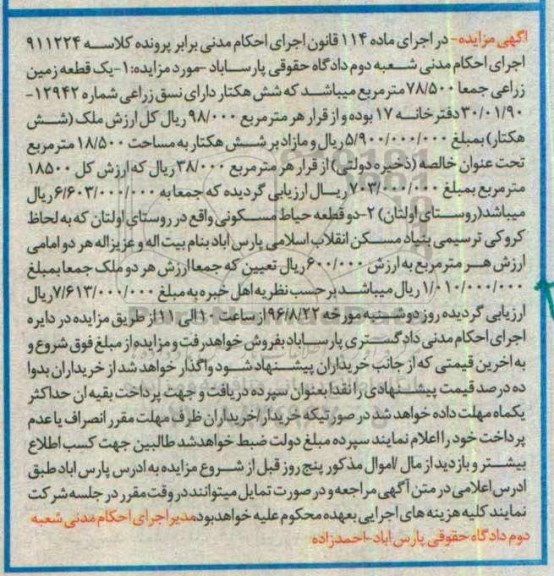 آگهی مزایده- در اجرای ماده ۱۱۴ قانون اجرای احکام مدنی برابر پرونده کلاسه ۹۱۱۲۲۴
اجرای احکام مدنی شعبه دوم دادگاه حقوقی پارساباد -مورد مزایده: ۱-یک قطعه زمین
زراعی جمعا ۷۸/۵۰۰ متر مربع میباشد که شش هکتار دارای نسق زراعی شماره ۱۲۹۴۲-
۳۰/۰۱/۹۰ دفترخانه ۱۷ بوده و از قرار هر متر مربع ۹۸/۰۰۰ ریال کل ارزش ملک (شش
هکتار) بمبلغ ۵/۹۰۰/۰۰۰/۰۰۰ ریال و مازاد بر شش هکتار به مساحت ۱۸/۵۰۰ متر مربع
تحت عنوان خالصه (ذخیره دولتی) از قرار هر متر مربع ۳۸/۰۰۰ ریال که ارزش کل ۱۸۵۰۰
متر مربع بمبلغ ۷۰۳/۰۰۰/۰۰۰ ریال ارزیابی گردیده که جمعا به ۶/۶۰۳/۰۰۰/۰۰۰ ریال
میباشد (روستای اولتان) ۲-دو قطعه حیاط مسکونی واقع در روستای اولتان که به لحاظ
کروکی ترسیمی بنیاد مسکن انقلاب اسلامی پارس اباد بنام بیت اله و عزیزاله هر دو امامی
ارزش هر متر مربع به ارزش ۶۰۰/۰۰۰ ریال تعیین که جمعا ارزش هر دو ملک جمعا بمبلغ
۱/۰۱۰/۰۰۰/۰۰۰ ریال میباشد بر حسب نظریه اهل خبره به مبلغ ۷/۶۱۳/۰۰۰/۰۰۰ ریال
ارزیابی گردیده روز دوشنبه مورخه ۹۶/۸/۲۲ از ساعت ۱۰ الی ۱۱ از طریق مزایده در دایره
اجرای احکام مدنی دادگستری پارساباد بفروش خواهد رفت و مزایده از مبلغ فوق شروع و
به اخرین قیمتی که از جانب خریداران پیشنهاد شود واگذار خواهد شد از خریداران بدوا
ده درصد قیمت پیشنهادی را نقدا بعنوان سپرده دریافت و جهت پرداخت بقیه ان حداکثر
یکماه مهلت داده خواهد شد در صورتیکه خریدار/خریداران ظرف مهلت مقرر انصراف یا عدم
پرداخت خود را اعلام نمایند سپرده مبلغ دولت ضبط خواهد شد طالبین جهت کسب اطلاع
بیشتر و بازدید از مال /اموال مذکور پنج روز قبل از شروع مزایده به ادرس پارس اباد طبق
ادرس اعلامی در متن آگهی مراجعه و در صورت تمایل میتوانند در وقت مقرر در جلسه شرکت
نمایند کلیه هزینه های اجرایی بعهده محکوم علیه خواهد بود مدیر اجرای احکام مدنی شعبه
دوم دادگاه حقوقی پارس اباد -احمدزاده